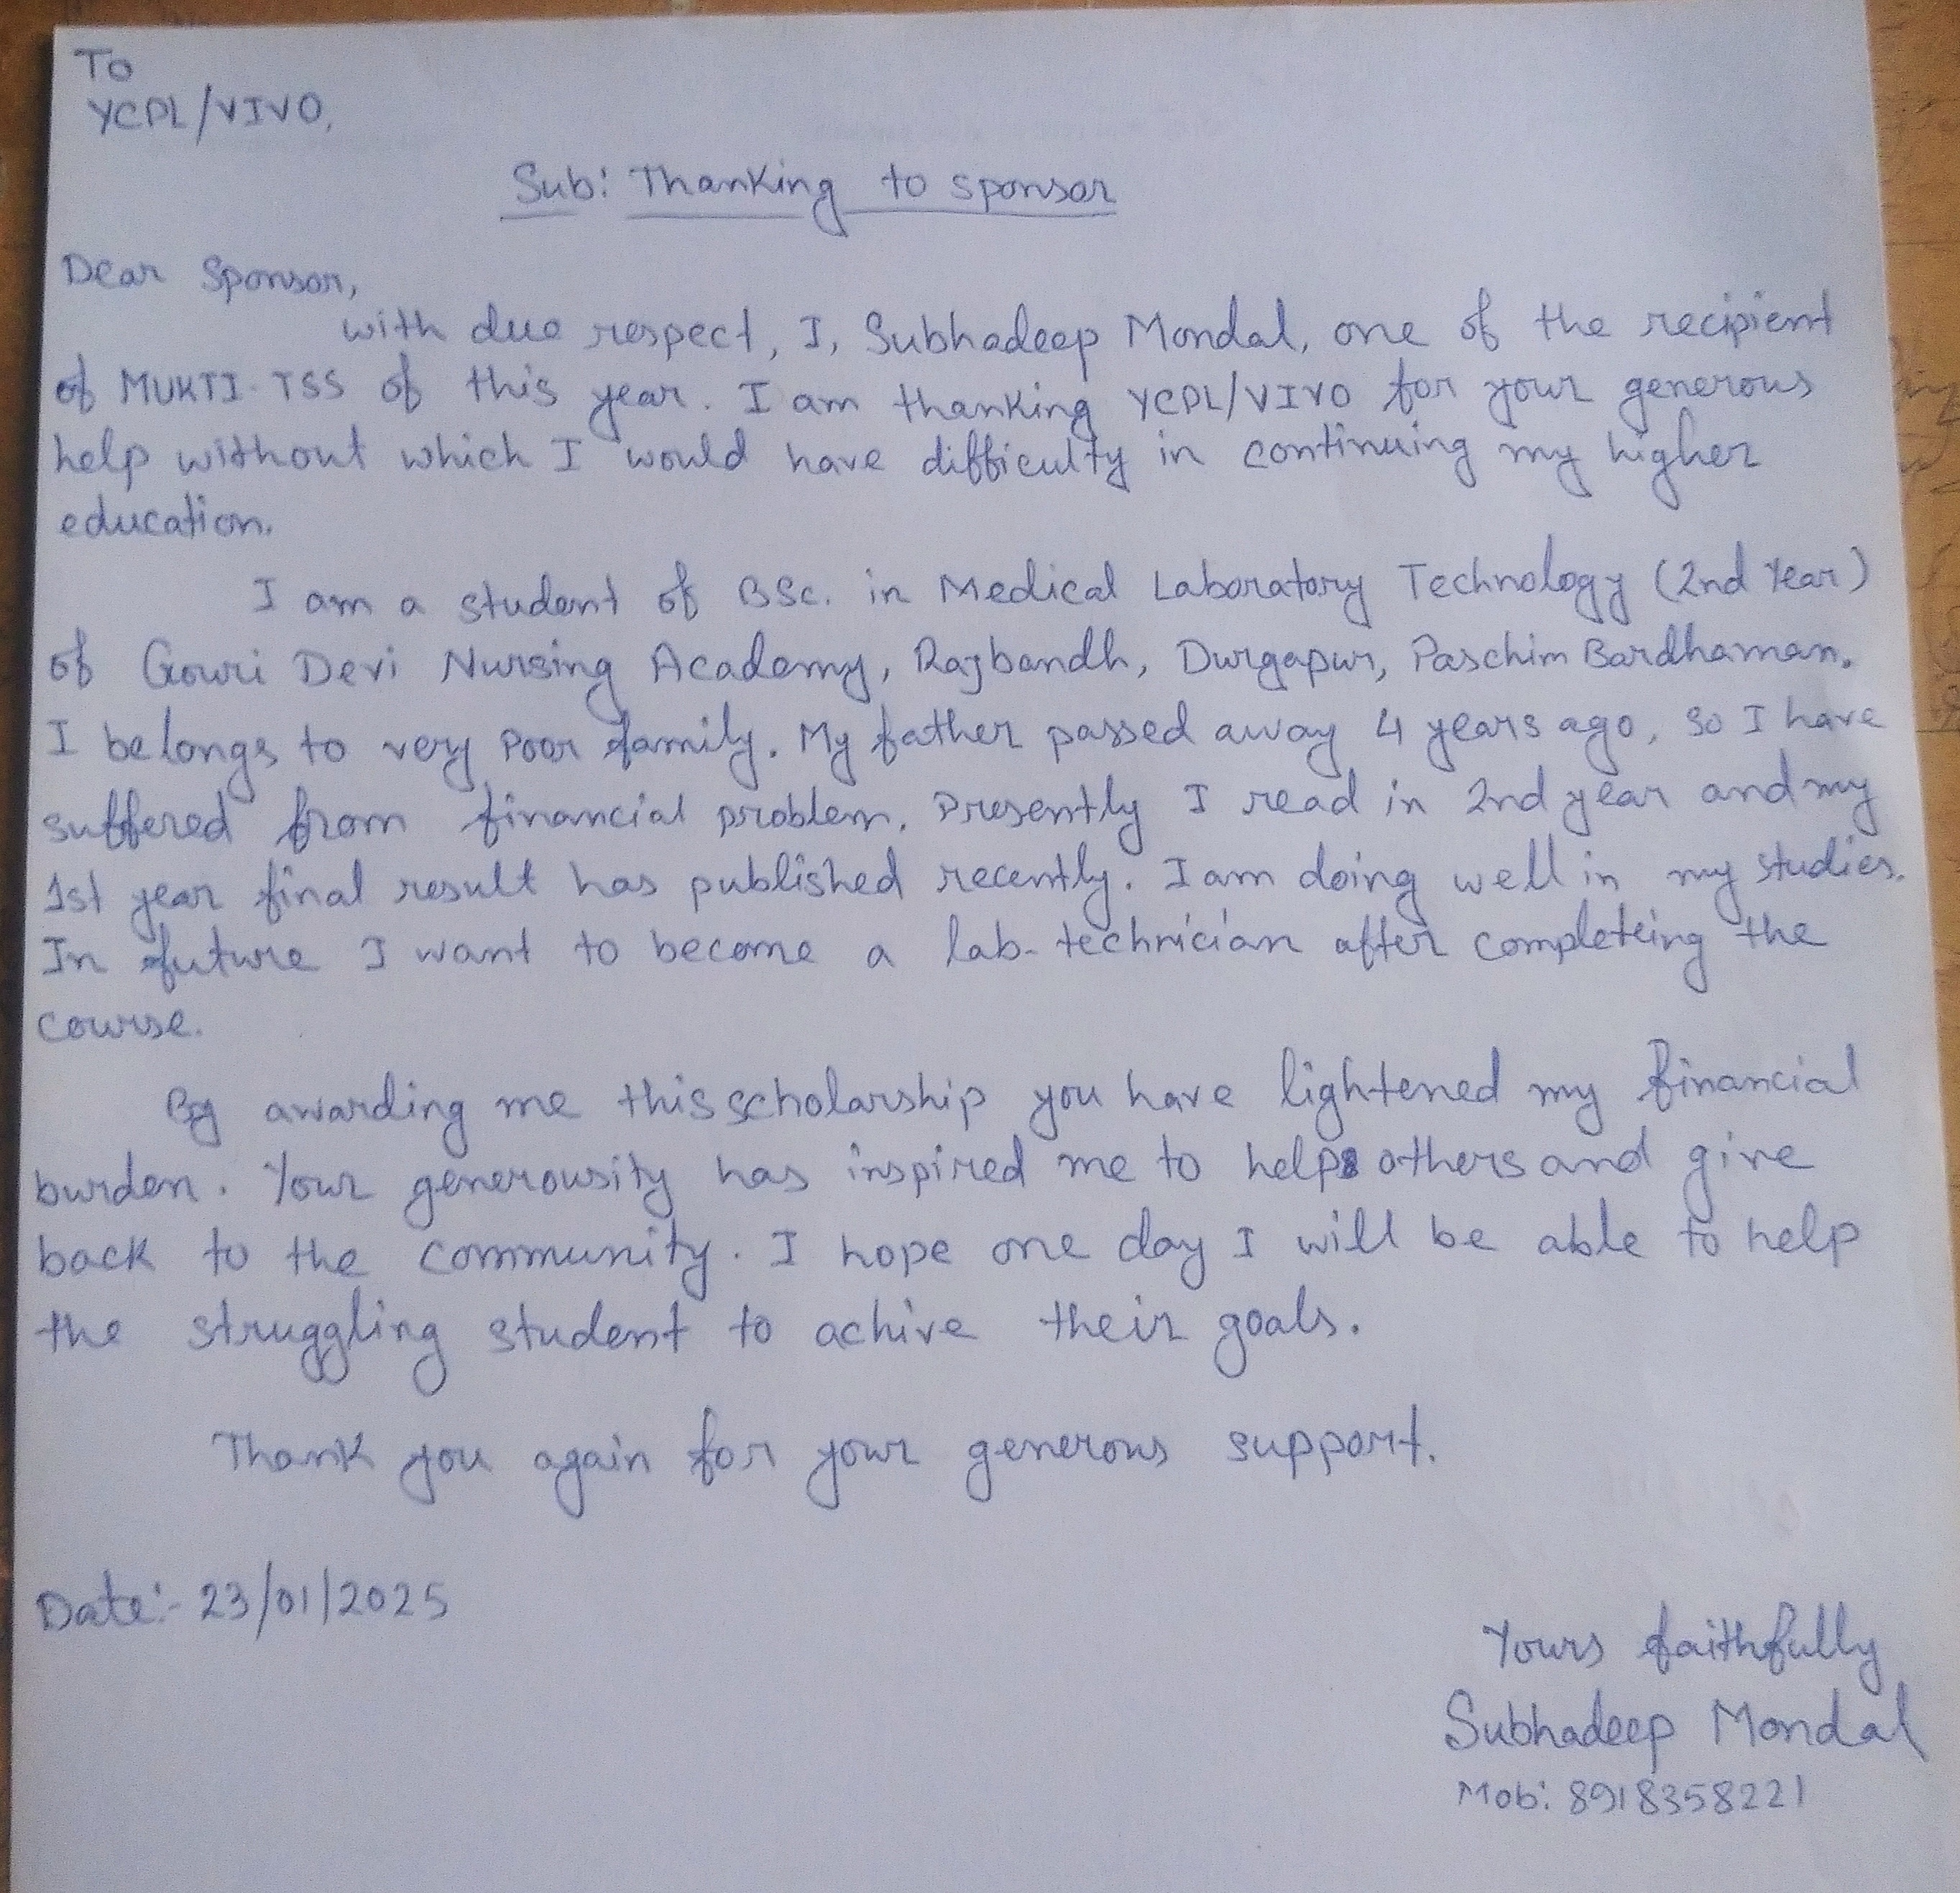 To
YCPL/VIVO,
Sub: Thanking to sponsor
Dear Sponsor,
with due respect, I, Subhadeep Mondal, one of the recipient
of MUKTI-TSS of this year. I am thanking YCPL/VIVO for your generous
help without which I would have difficulty in continuing my higher
education.
I am a student of BSc. in Medical Laboratory Technology (2nd Year)
of Gouri Devi Nursing Academy, Rajbandh, Durgapur, Paschim Bardhaman.
I belongs to very poor family. My father passed away 4 years ago, so I have
suffered from financial problem. Presently I read in 2nd year and my
1st year final result has published recently. I am doing well in my studies.
In future I want to become a lab-technician after completeing the
course.
By awarding me this scholarship you have lightened my financial
burden. Your generousity has inspired me to help others and give
back to the community. I hope one day I will be able to help
the struggling student to achive their goals.
Thank you again for your generous support.
Date:- 23/01/2025
Yours faithfully
Subhadeep Mondal
Mob: 8918358221